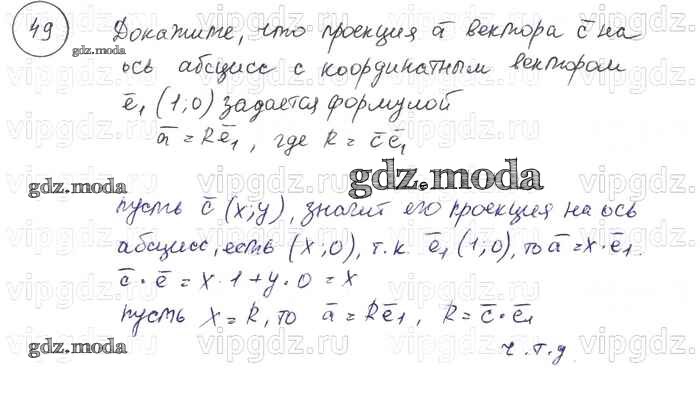 49
Докажите, что проекция a̅ вектора c̅ на
ось абсцисс с координатным вектором
e̅₁ (1;0) задается формулой
a̅ = Re̅₁, где R = c̅e̅₁
gdz.moda
gdz.moda
gdz.moda
пусть c̅ (x;y), значит его проекция на ось
абсцисс, есть (x;0), т.к. e̅₁ (1;0), то a̅ = x·e̅₁.
c̅·e̅ = x·1+y·0 = x
пусть x = R, то a̅ = Re̅₁, R = c̅·e̅₁
gdz.moda
ч.т.д